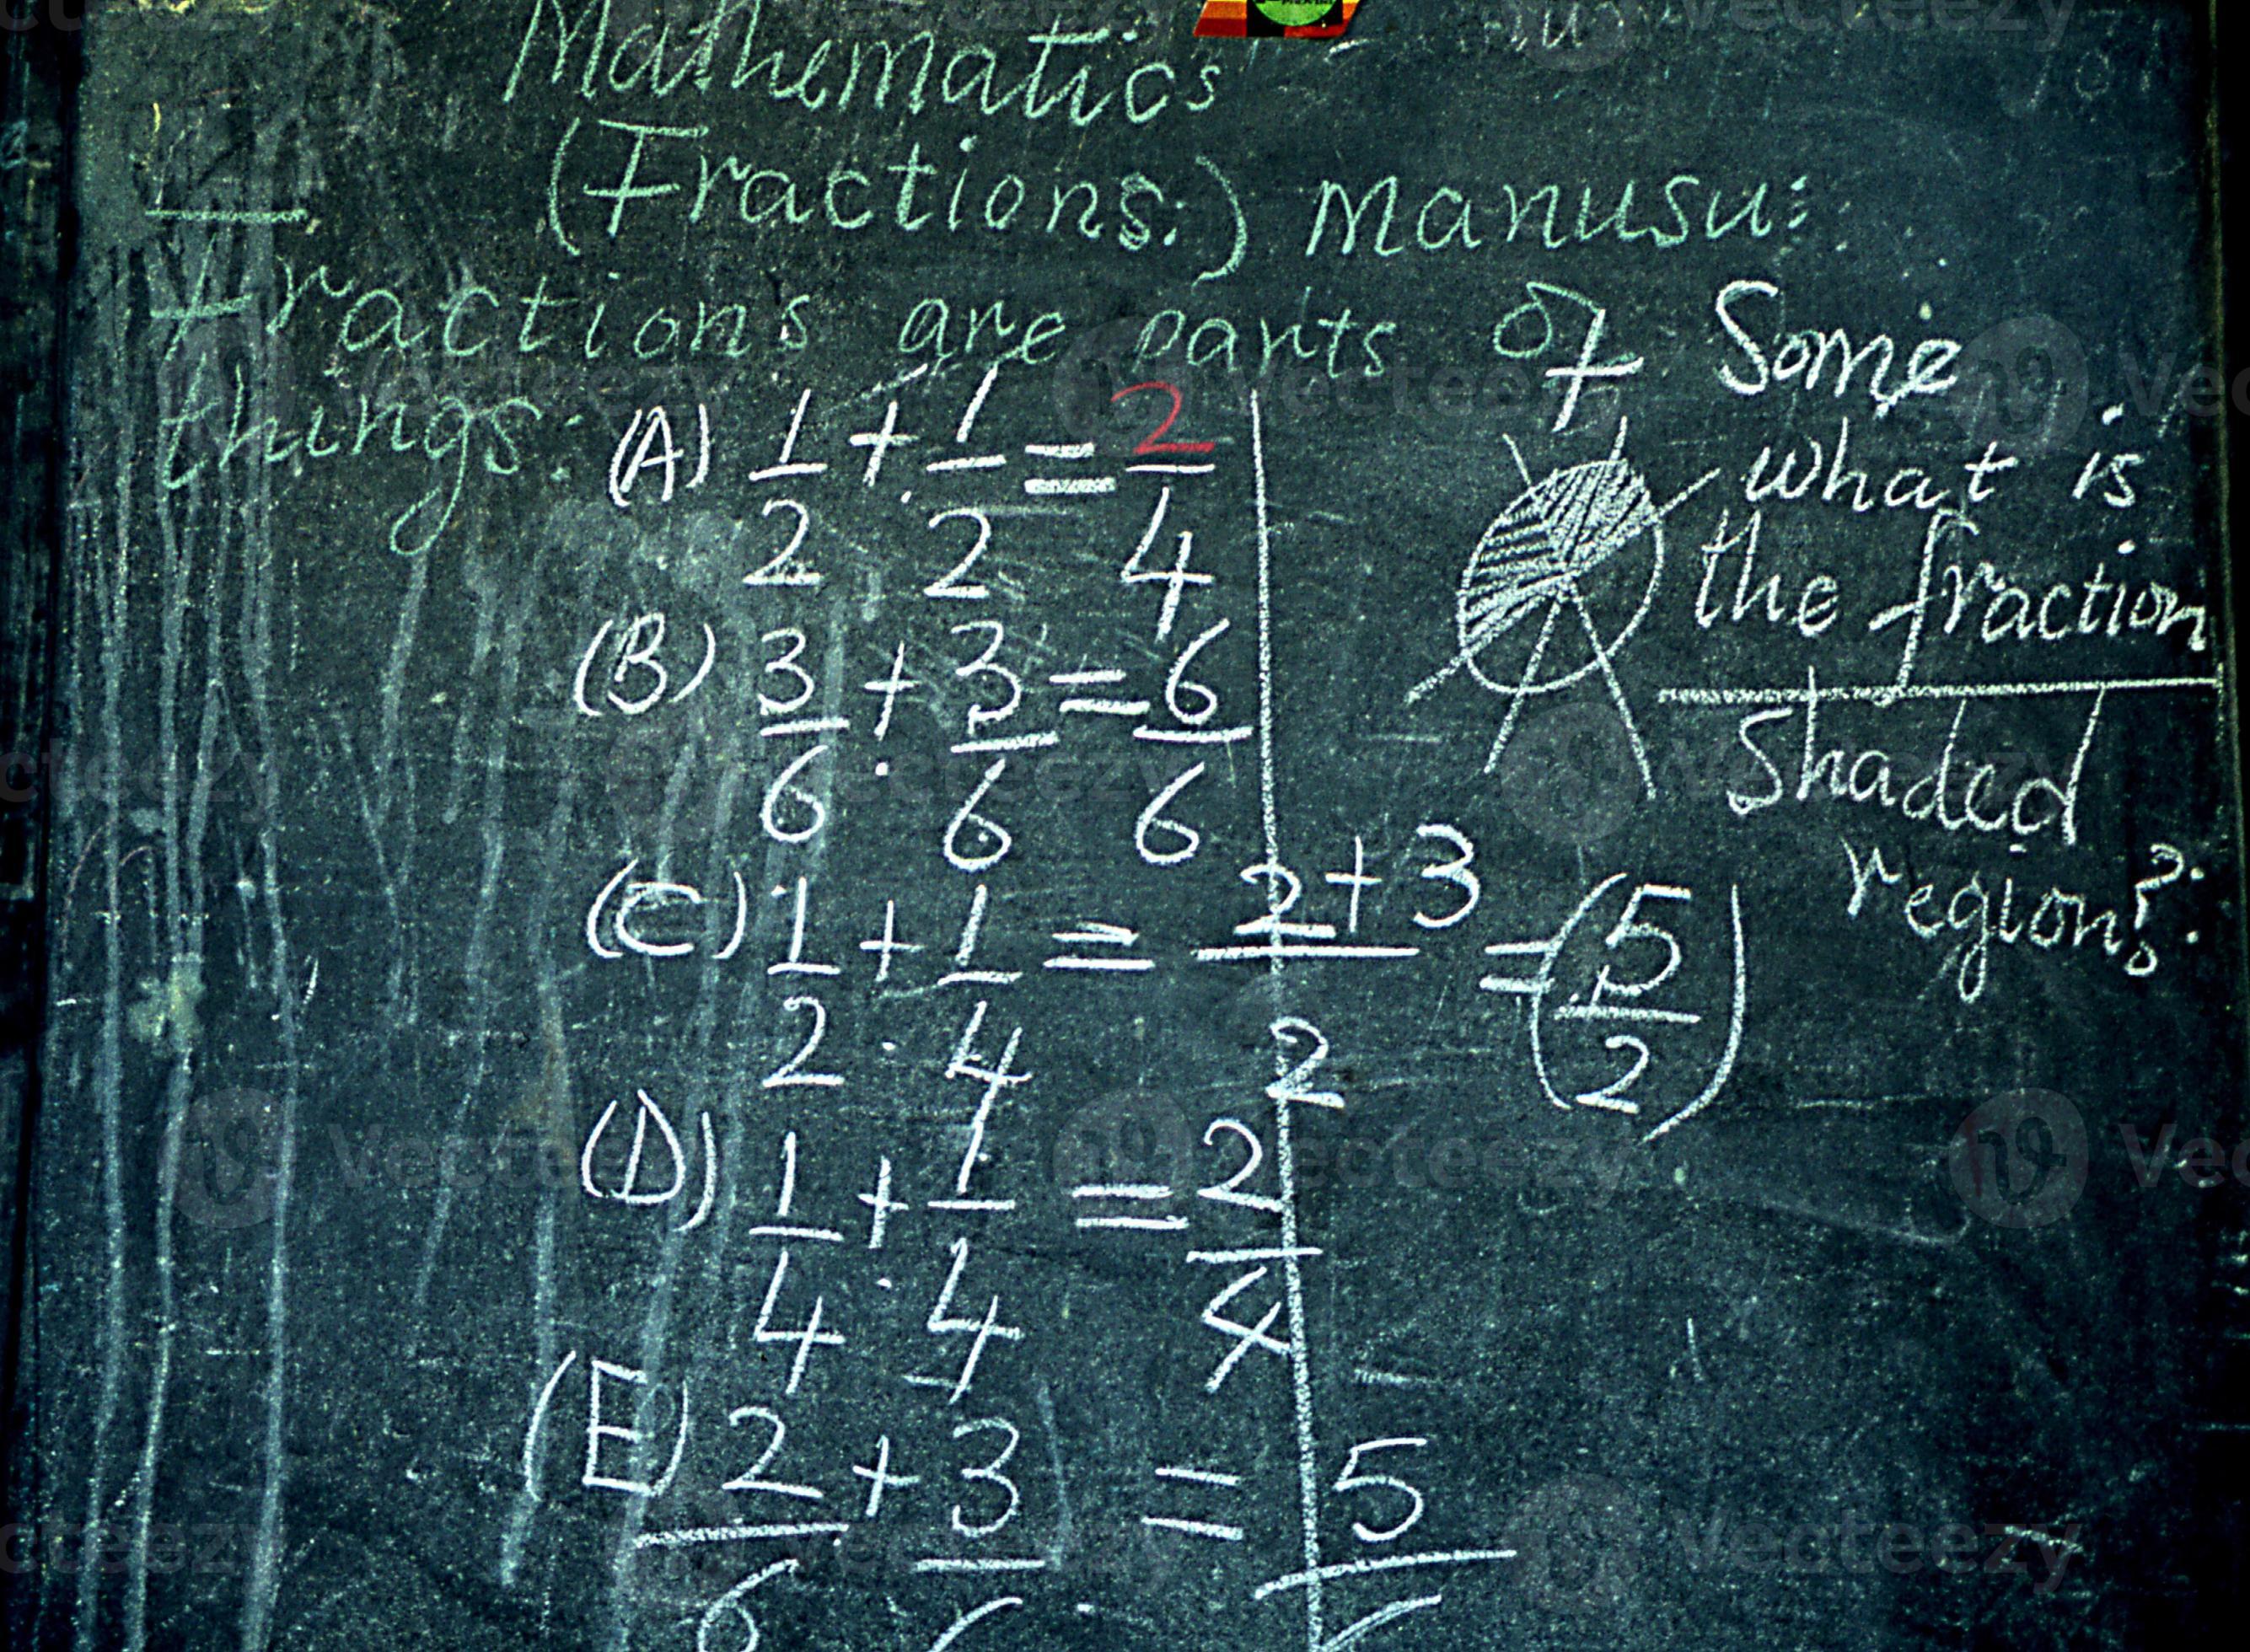 Mathematics
(Fractions:) Manusu:
Fractions are parts of Some
things:
(A) 1/2 + 1/2 = 2/4
(B) 3/6 + 3/6 = 6/6
(C) 1/2 + 1/4 = 2+3/2 = (5/2)
(D) 1/4 + 1/4 = 2/4
(E) 2/6 + 3/ = 5/
what is
the fraction
Shaded
region?
Vecteezy